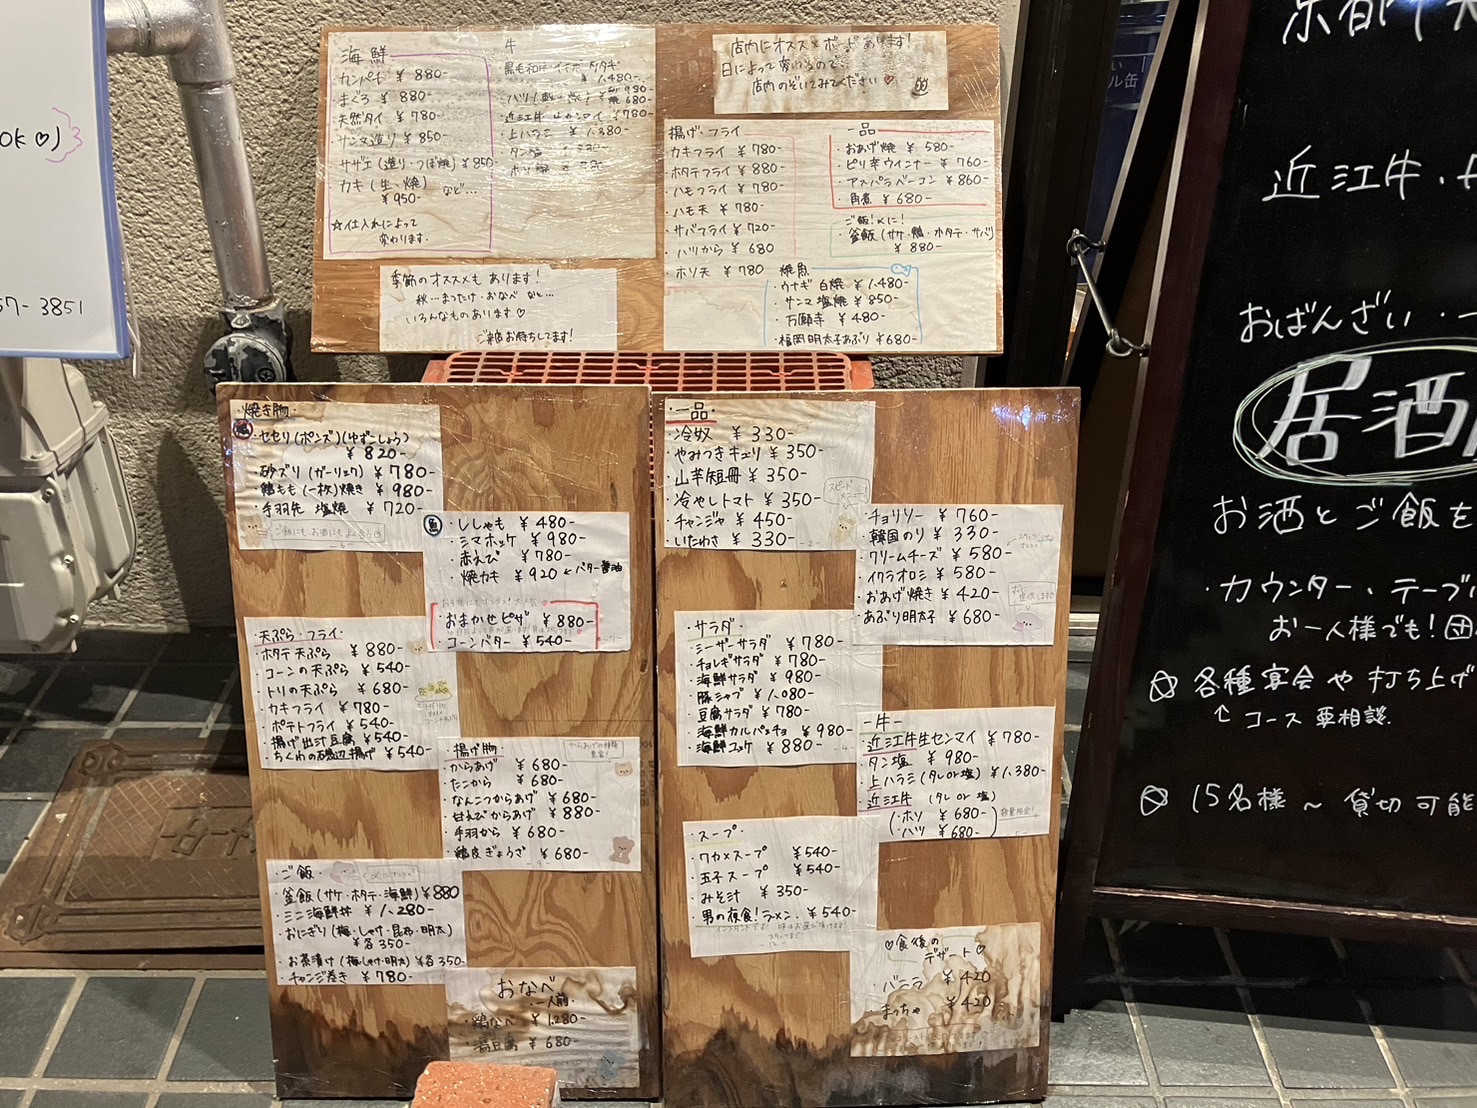 OK♡)
57-3851
海鮮
・カンパチ ¥880-
・まぐろ ¥880-
・天然ダイ ¥780-
・サンマ造り ¥850-
・サザエ(造り・つぼ焼) ¥850-
・カキ(生・焼)
¥950-
など…
☆仕入れによって
変わります.
牛
¥1,480-
・上ハラミ ¥1,380-
・タン塩
季節のオススメも あります!
秋…まったけ・おなべ など…
いろんなものあります♡
ご来店お待ちしてます!
店内にオススメボードあります!
日によって変いるので…
店内のぞいてみてください♡
揚げ・フライ
・カキフライ ¥780-
・ホタテフライ ¥880-
・ハモフライ ¥780-
・ハモ天 ¥780-
・サバフライ ¥720-
・ハツから ¥680
・ホソ天 ¥780
一品
・おあげ焼 ¥580-
・ピリ辛ウインナー ¥760-
・アスパラベーコン ¥860-
・角煮 ¥680-
・釜飯(サケ・鴨・ホタテ・サバ)
¥880-
焼魚
・ウナギ 白焼 ¥1,480-
・サンマ 塩焼 ¥850-
・万願寺 ¥480-
・福岡明太子あぶり ¥680-
・焼き物・
・セセリ(ポンズ)(ゆずこしょう)
¥820-
・砂ズリ(ガーリック) ¥780-
・鶏もも(一枚)焼き ¥980-
・手羽先 塩焼 ¥720-
ご飯にも、お酒にもよく合う
魚
・ししゃも ¥480-
・シマホッケ ¥980-
・赤えび ¥780-
・焼カキ ¥920 ←バター醤油
・おまかせピザ ¥880-
・コーンバター ¥540-
・天ぷら・フライ・
・ホタテ天ぷら ¥880-
・コーンの天ぷら ¥540-
・トリの天ぷら ¥680-
・カキフライ ¥780-
・ポテトフライ ¥540-
・揚げ出汁豆腐 ¥540-
・ちくわの磯辺揚げ ¥540-
・揚げ物・
・からあげ ¥680-
・たこから ¥680-
・なんこつからあげ ¥680-
・甘えびからあげ ¥880-
・手羽から ¥680-
・鶏皮ぎょうざ ¥680-
・ご飯・
・釜飯(サケ・ホタテ・海鮮) ¥880
・ミニ海鮮丼 ¥1,280-
・おにぎり(梅・しゃけ・昆布・明太)
¥各350-
・お茶漬け(梅・しゃけ・明太) ¥各350-
・チャンジャ巻き ¥780-
おなべ
・一人前・
・鶏なべ ¥1,280-
・湯豆腐 ¥680-
・一品・
・冷奴 ¥330-
・やみつきキュリ ¥350-
・山芋短冊 ¥350-
・冷やしトマト ¥350-
・チャンジャ ¥450-
・いたわさ ¥330-
スピードメニュー!
・チョリソー ¥760-
・韓国のり ¥330-
・クリームチーズ ¥580-
・イクラオロシ ¥580-
・おあげ焼き ¥420-
・あぶり明太子 ¥680-
・サラダ・
・シーザーサラダ ¥780-
・チョレギサラダ ¥780-
・海鮮サラダ ¥980-
・豚シャブ ¥1,080-
・豆腐サラダ ¥780-
・海鮮カルパッチョ ¥980-
・海鮮ユッケ ¥880-
-牛-
・近江牛生センマイ ¥780-
・タン塩 ¥980-
・上ハラミ(タレor塩) ¥1,380-
・近江牛 (タレor塩)
(・ホソ ¥680-
・ハツ ¥680-)
数量限定!
・スープ・
・ワカメスープ ¥540-
・玉子スープ ¥540-
・みそ汁 ¥350-
・男の夜食!ラーメン. ¥540-
♡食後の
デザート♡
・バニラ ¥420
・まっちゃ ¥420-
近江牛・
おばんざい・
居酒
お酒とご飯を
・カウンター・テーブル
お一人様でも!団
☆各種宴会や打ち上げ
↑コース要相談.
☆15名様〜貸切可能